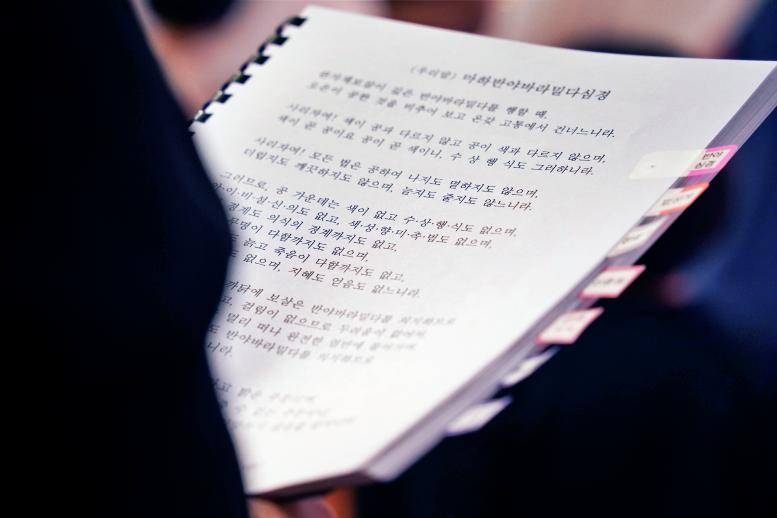 (우리말) 마하반야바라밀다심경
관자재보살이 깊은 반야바라밀다를 행할 때,
오온이 공한 것을 비추어 보고 온갖 고통에서 건너느니라.
사리자여! 색이 공과 다르지 않고 공이 색과 다르지 않으며,
색이 곧 공이요 공이 곧 색이니, 수 상 행 식도 그러하니라.
사리자여! 모든 법은 공하여 나지도 멸하지도 않으며,
더럽지도 깨끗하지도 않으며, 늘지도 줄지도 않느니라.
그러므로, 공 가운데는 색이 없고 수·상·행·식도 없으며,
이·비·설·신·의도 없고, 색·성·향·미·촉·법도 없으며,
경계도 의식의 경계까지도 없고,
무명이 다함까지도 없으며,
늙고 죽음이 다함까지도 없고,
없으며, 지혜도 얻음도 없느니라.
까닭에 보살은 반야바라밀다를 의지하므로
걸림이 없으므로 두려움이 없어서
멀리 떠나 완전한 열반에 들어가며
반야바라밀다를 의지하므로
니라.
밝은
반야
심경